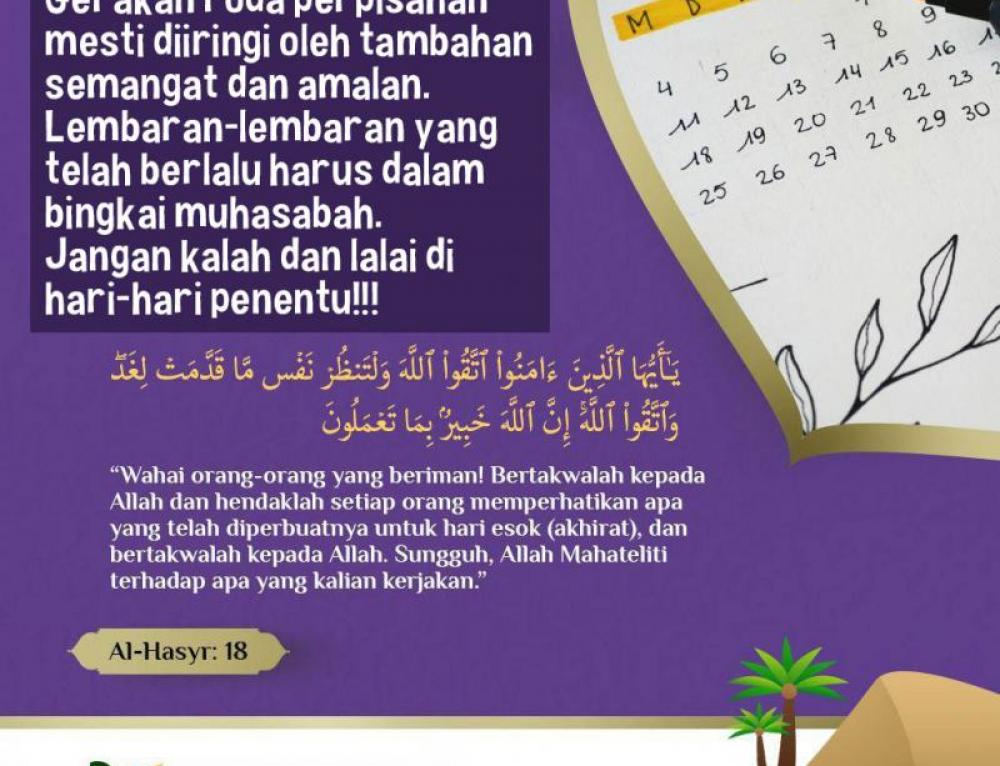 Gerakan roda perpisahan
mesti diiringi oleh tambahan
semangat dan amalan.
Lembaran-lembaran yang
telah berlalu harus dalam
bingkai muhasabah.
Jangan kalah dan lalai di
hari-hari penentu!!!
M D
7 8 9
4 5 6
11 12 13 14 15 16
18 19 20 21 22 23
25 26 27 28 29 30
يَـٰٓأَيُّهَا ٱلَّذِينَ ءَامَنُوا۟ ٱتَّقُوا۟ ٱللَّهَ وَلْتَنظُرْ نَفْسٌ مَّا قَدَّمَتْ لِغَدٍ ۖ
وَٱتَّقُوا۟ ٱللَّهَ ۚ إِنَّ ٱللَّهَ خَبِيرٌۢ بِمَا تَعْمَلُونَ
“Wahai orang-orang yang beriman! Bertakwalah kepada
Allah dan hendaklah setiap orang memperhatikan apa
yang telah diperbuatnya untuk hari esok (akhirat), dan
bertakwalah kepada Allah. Sungguh, Allah Mahateliti
terhadap apa yang kalian kerjakan.”
Al-Hasyr: 18